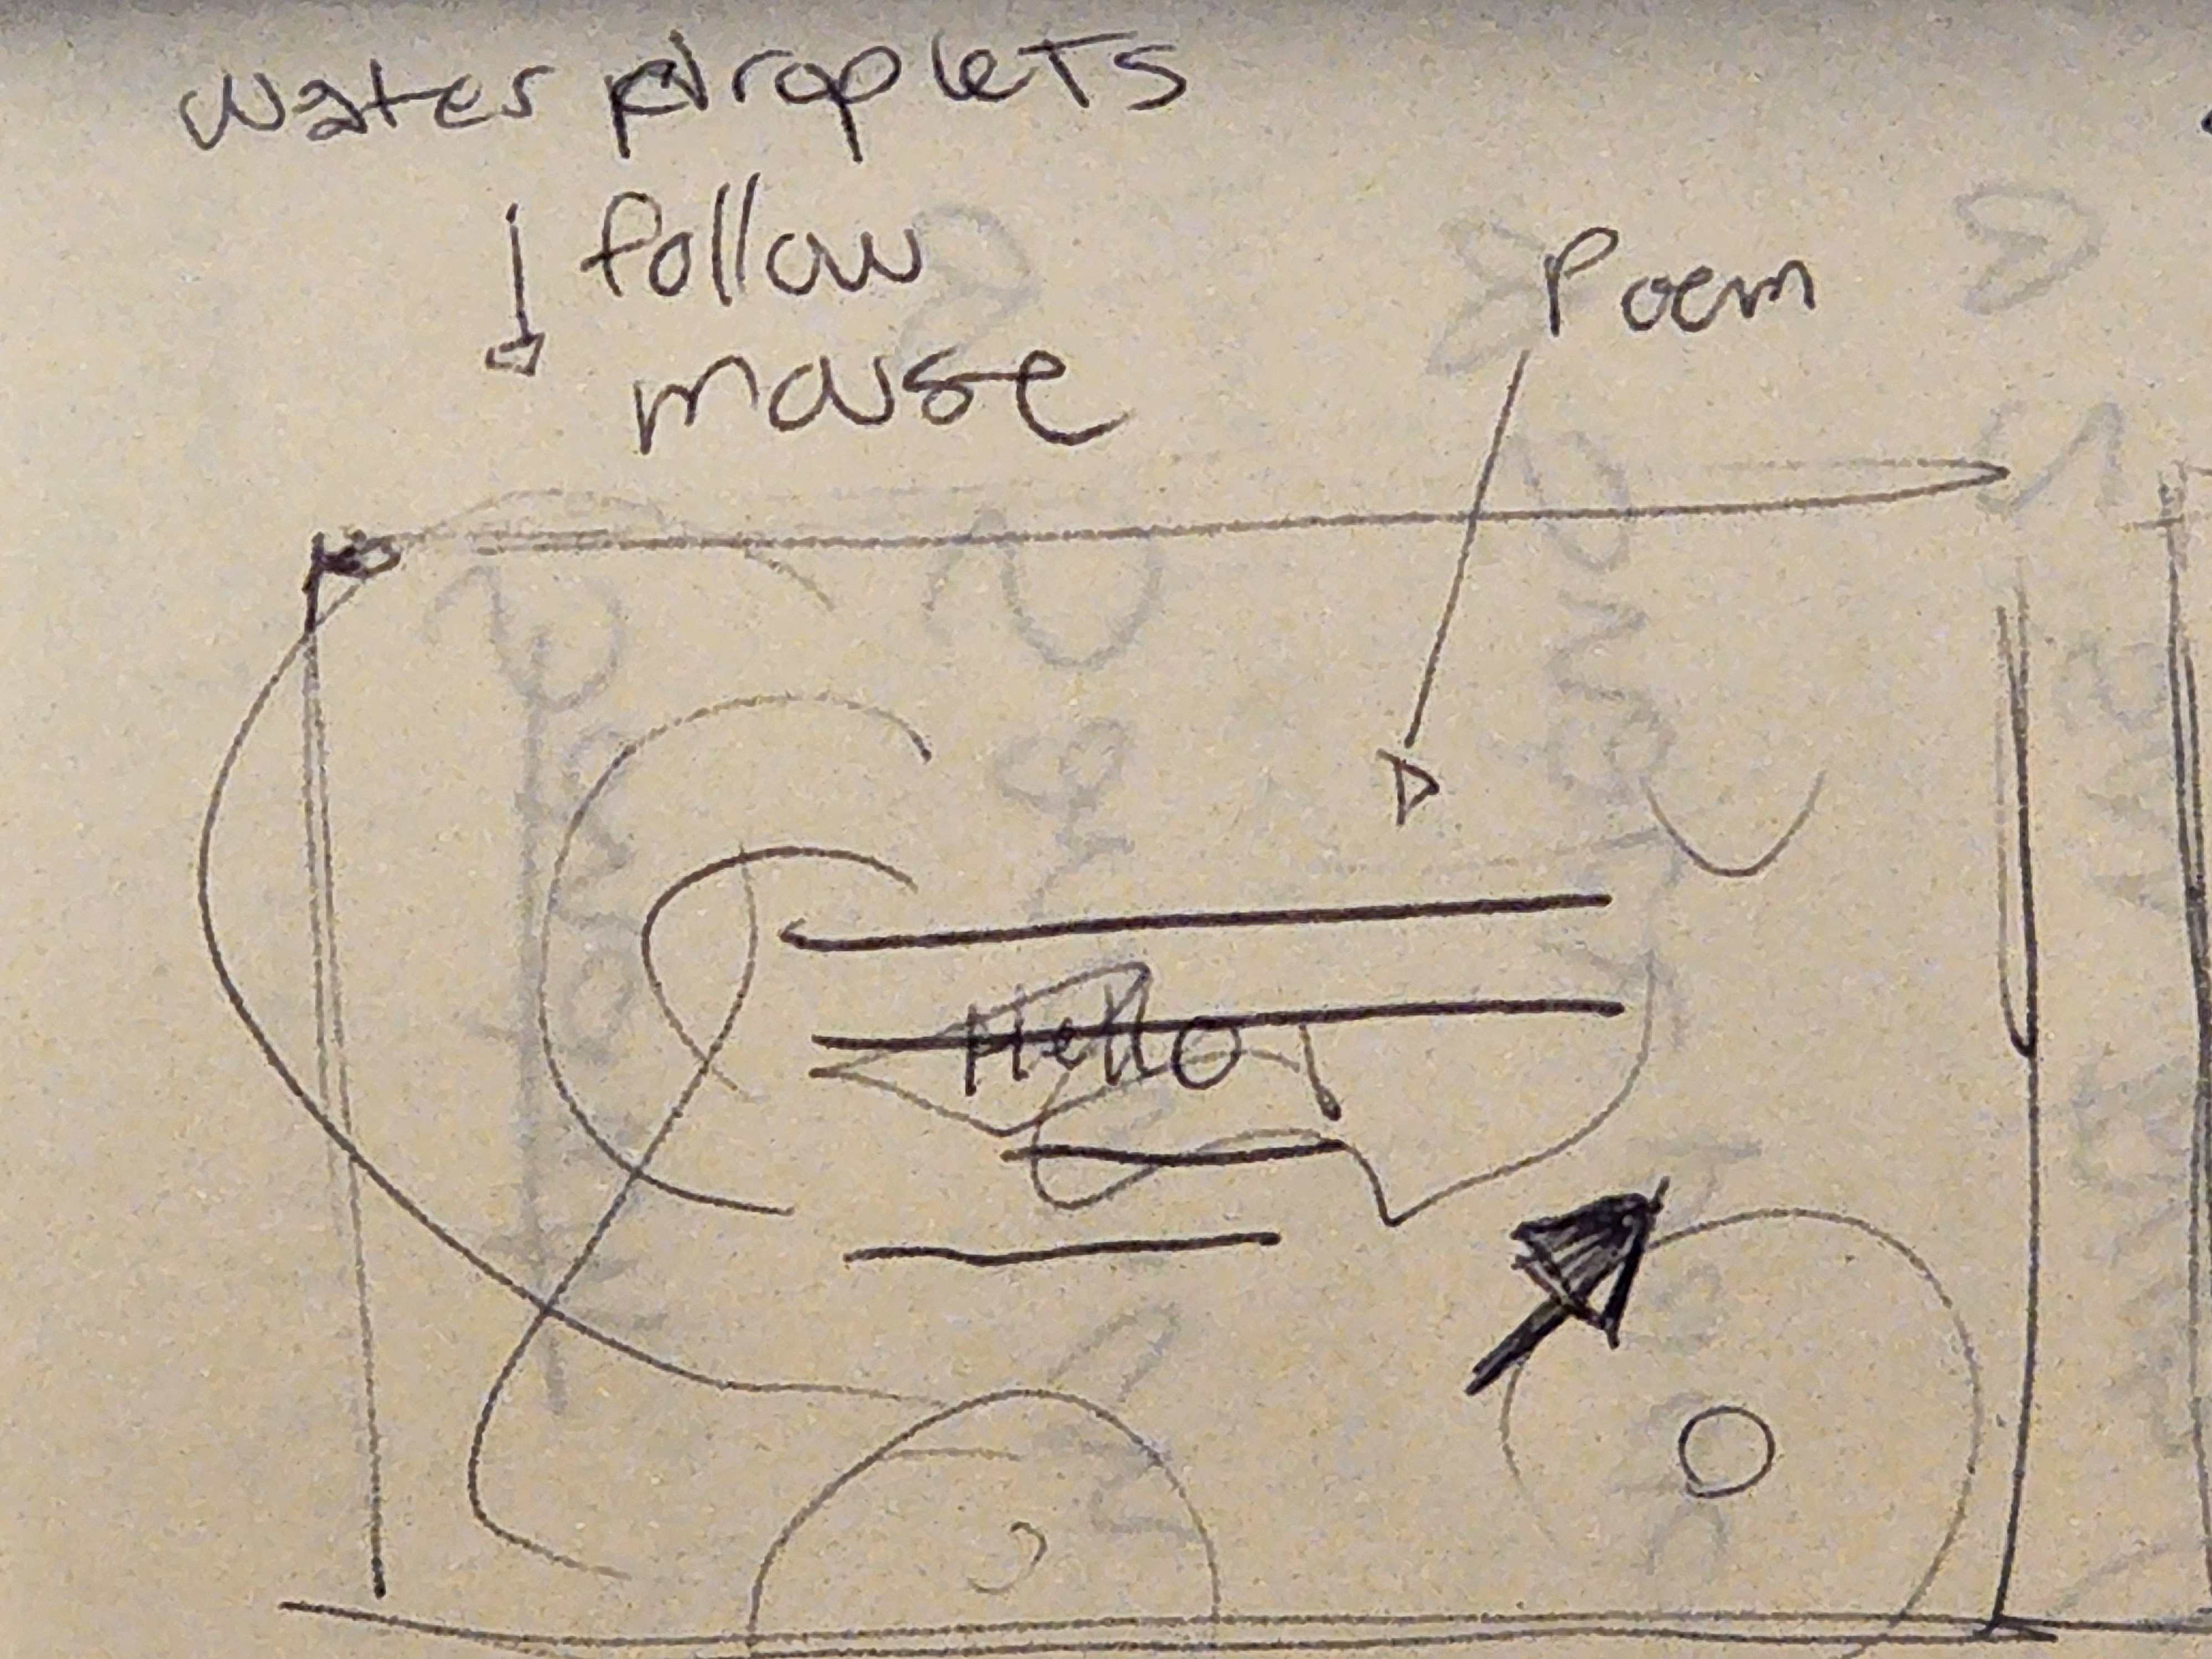 water droplets
follow
mouse
Poem
Hello